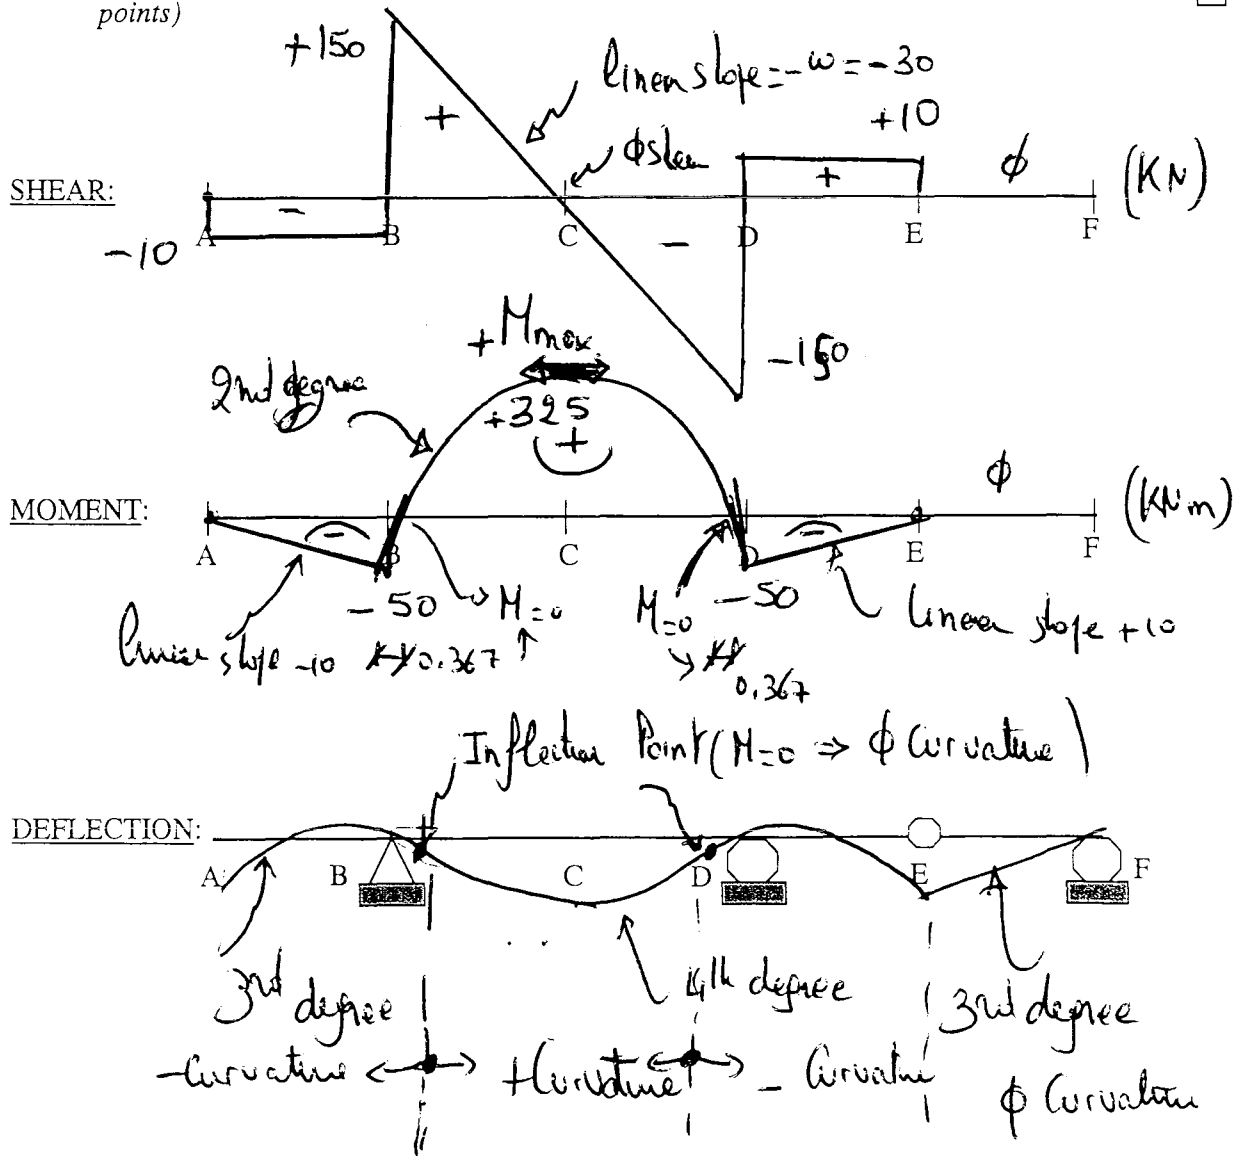 points)
+150
linear slope = -w = -30
+10
ϕ shear
+
+
ϕ
(KN)
SHEAR:
-
-
A B C D E F
-10
-150
+Mmax
2nd degree
+325
+
ϕ
(KNm)
MOMENT:
-
-
A B C D E F
-50 → M=0 M=0 -50 linear slope +10
linear slope -10 0.367 0.367
Inflection Point (M=0 ⇒ ϕ Curvature)
DEFLECTION:
A B C D E F
3rd degree 4th degree 3rd degree
-Curvature +Curvature - Curvature ϕ Curvature